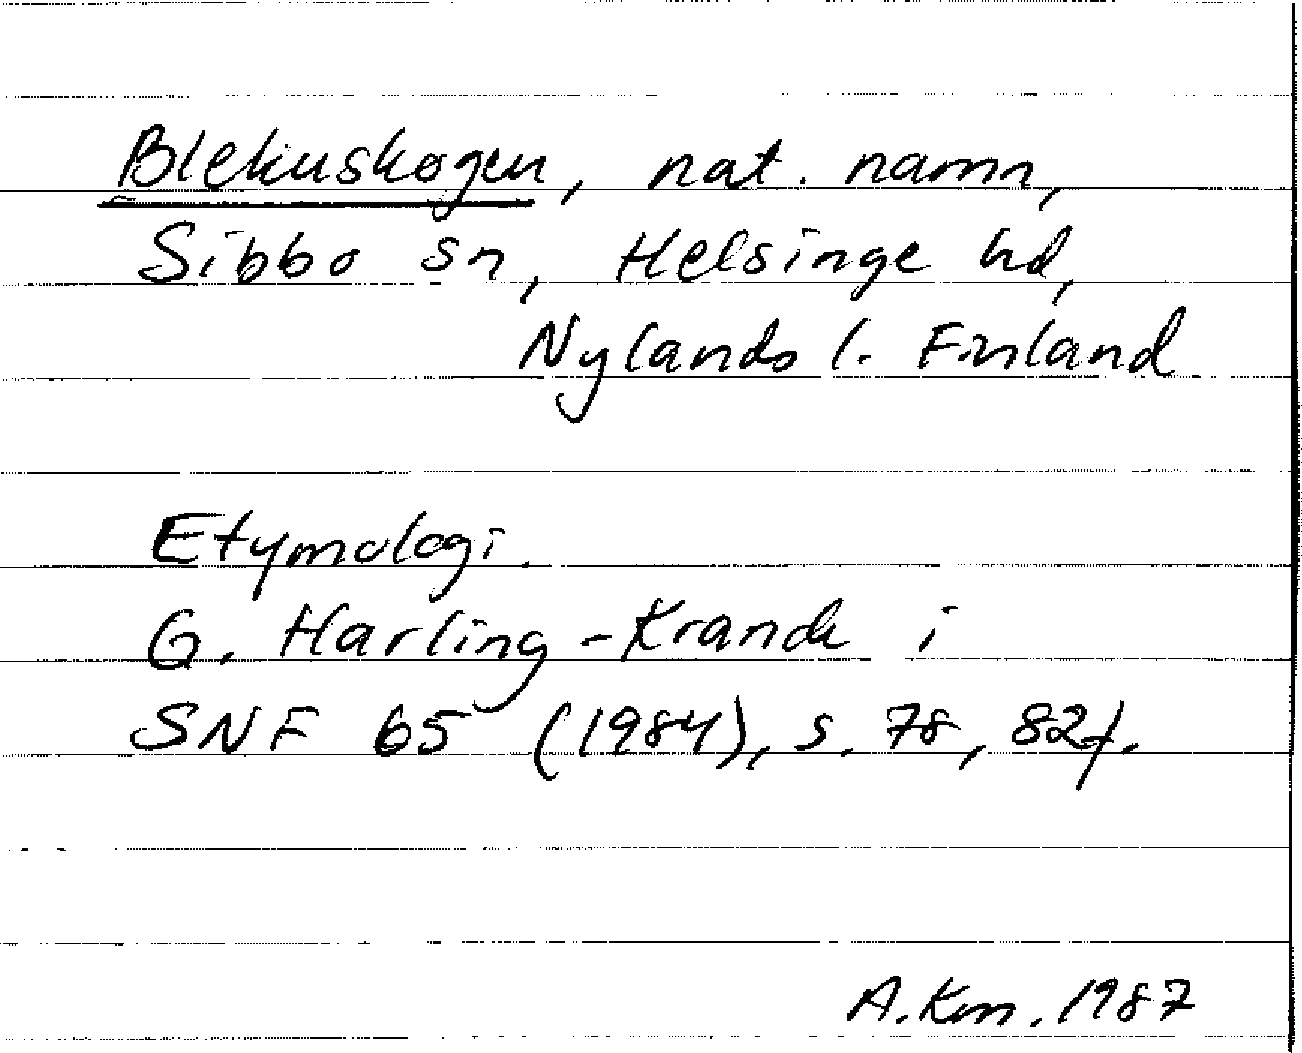 Blekuskogen, nat. namn,
Sibbo sn, Helsinge hd,
Nylands l. Finland
Etymologi.
G. Harling-Kranck i
SNF 65 (1984), s. 78, 82f.
A.Km. 1987